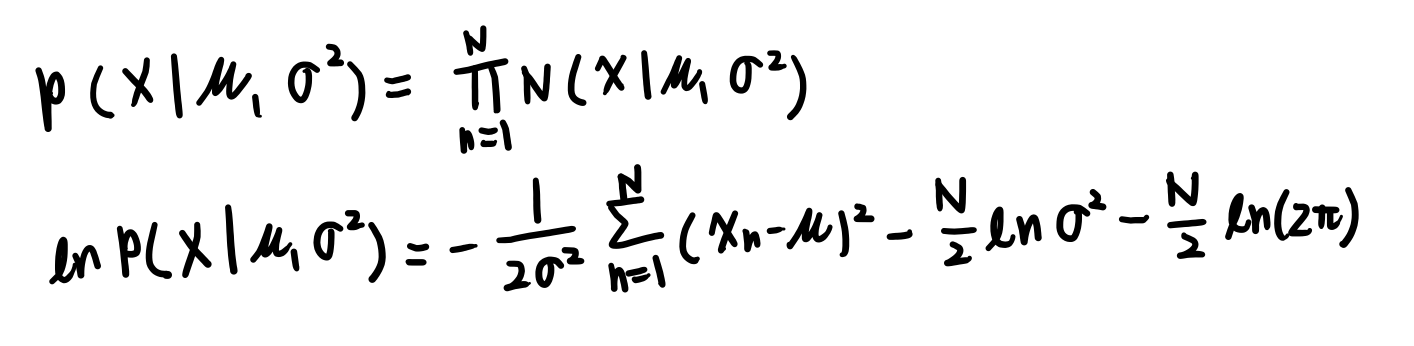 p(x|μ, σ²) = ∏_{n=1}^{N} N(x|μ, σ²)
ln p(x|μ, σ²) = - \frac{1}{2σ²} ∑_{n=1}^{N} (x_n - μ)² - \frac{N}{2} ln σ² - \frac{N}{2} ln(2π)